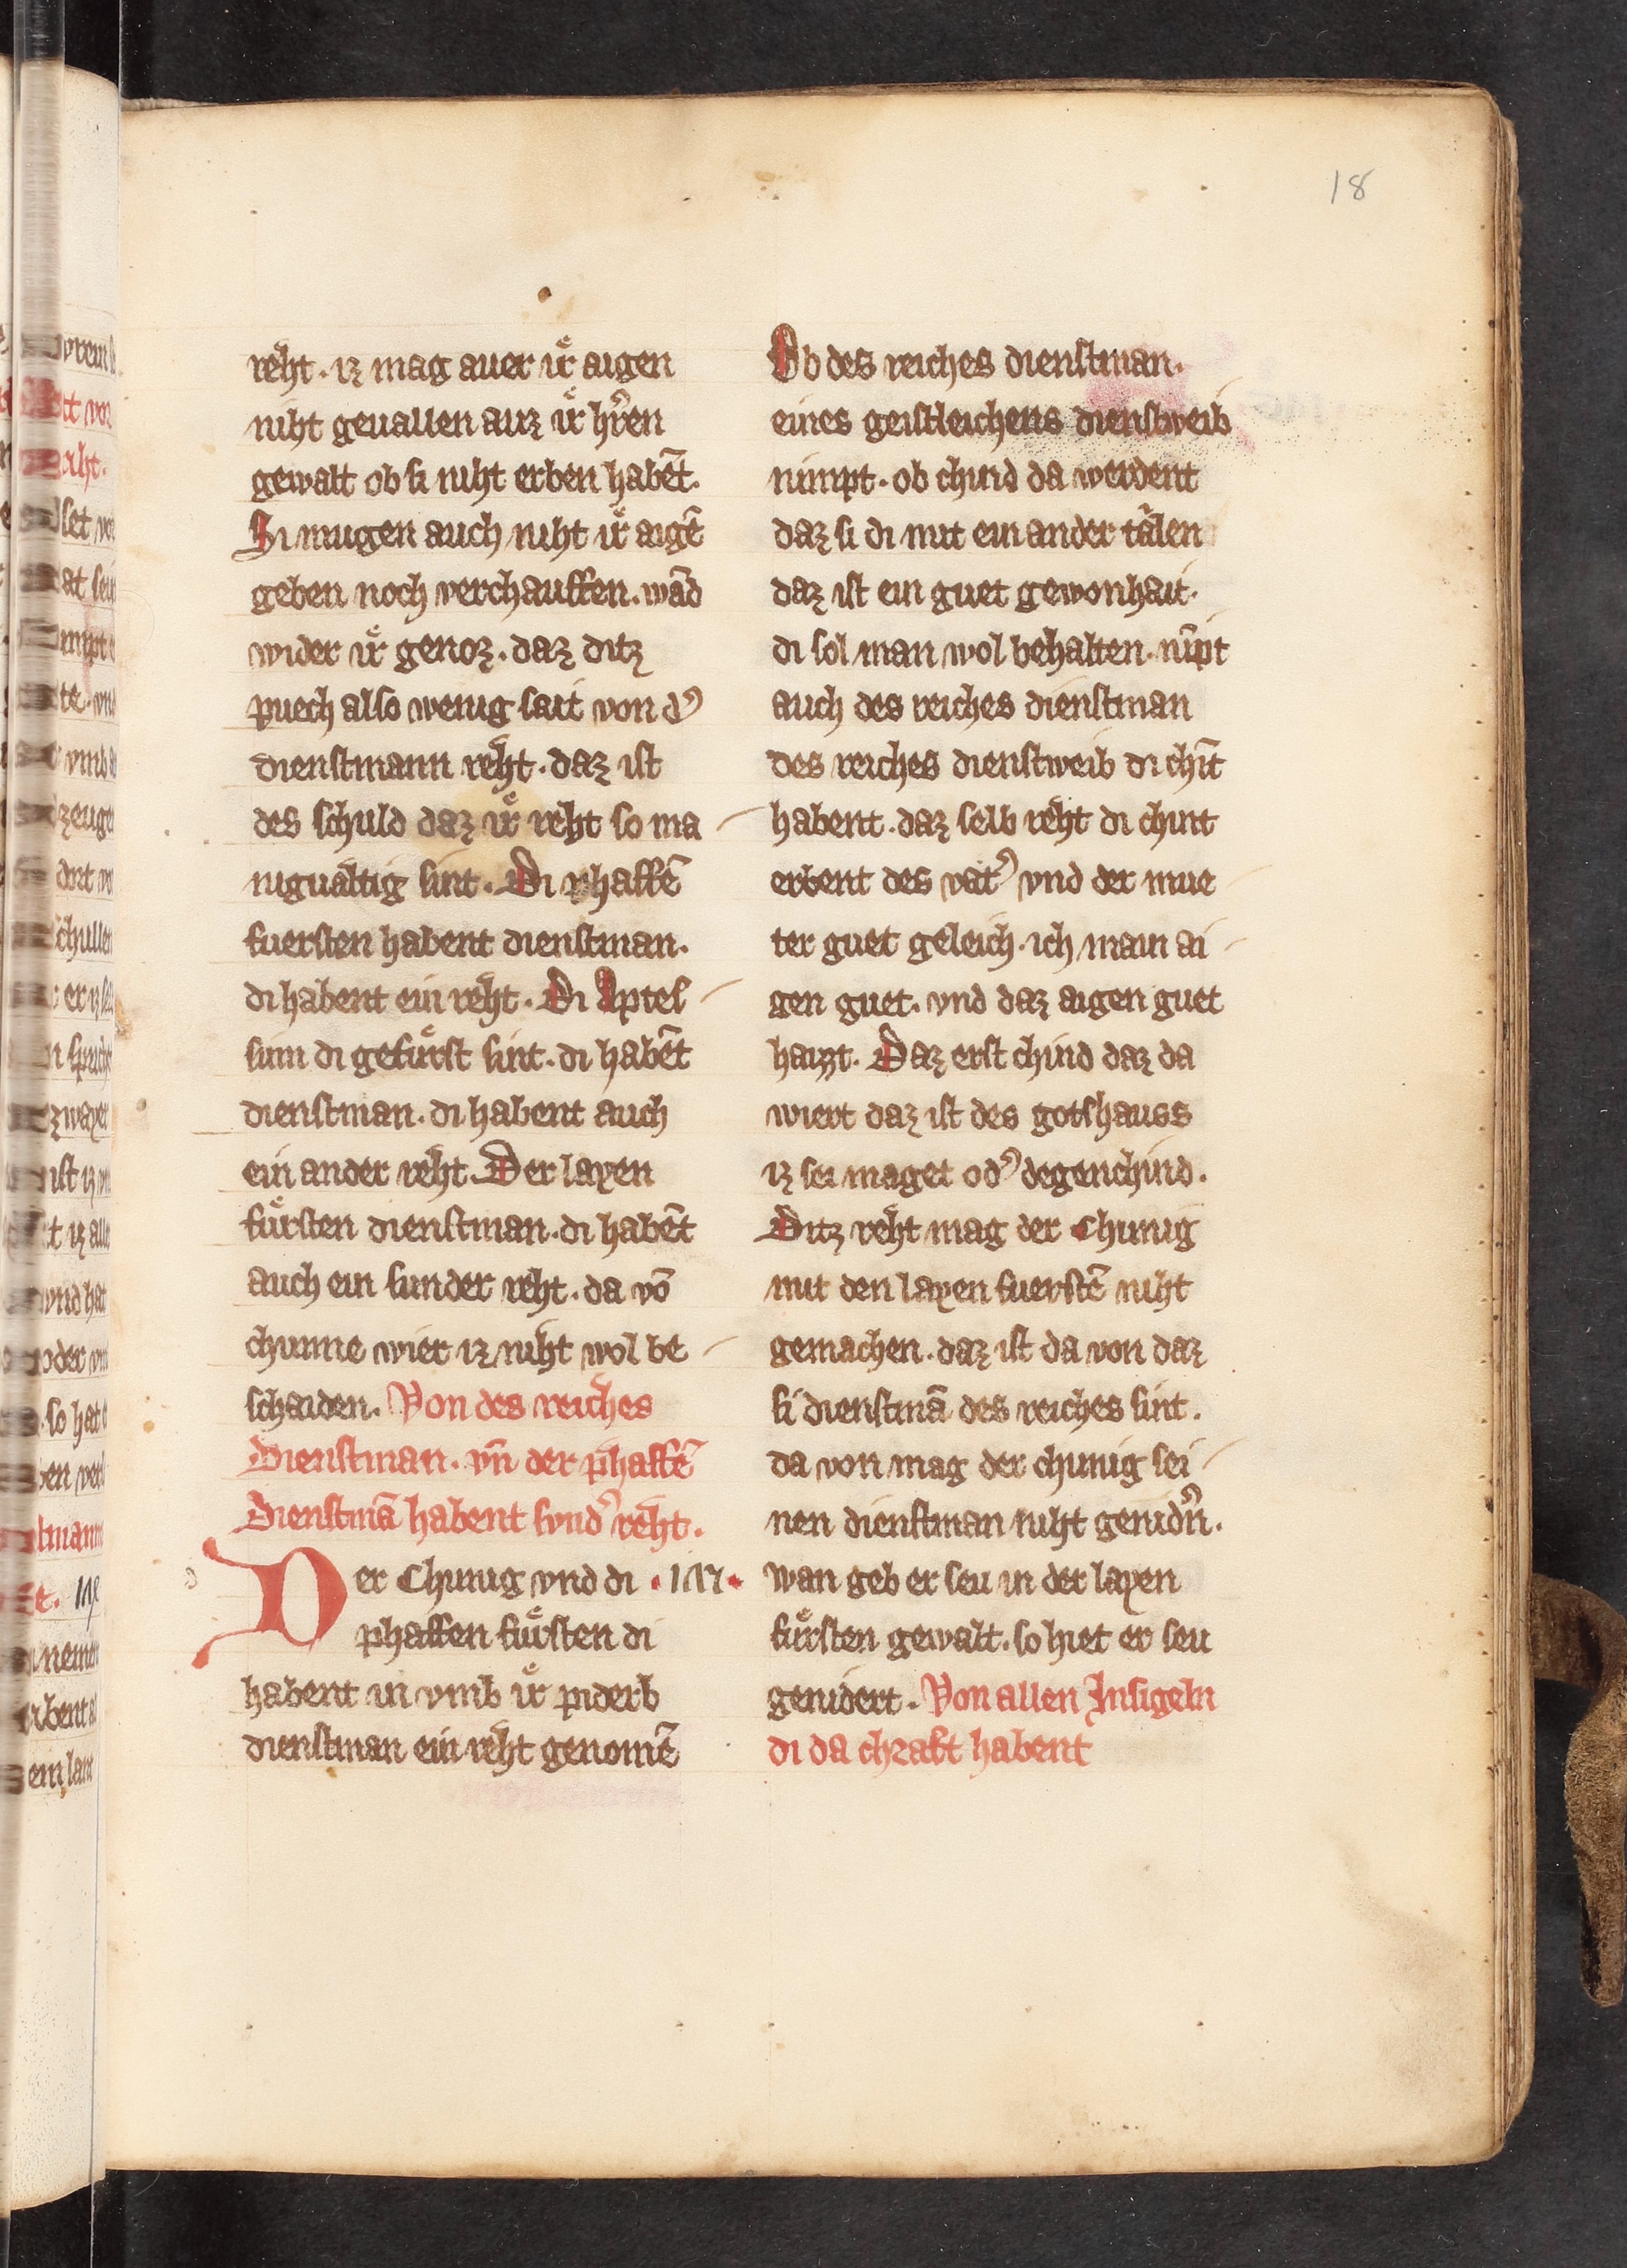 18
reht · iz mag auer iͤr aigen
niht geuallen auz iͤr hr̄en
gewalt ob si niht erben habēt.
Si mugen auch niht iͤr aigē
geben noch verchauffen . wād
wider iͤr genoz . daz ditz
puech also wenig sait von dˀ
dienstmann reht . daz ist
des schuld daz iͤr reht so ma
niguāltig sint . Di phaffē
fuersten habent dienstman .
di habent ein reht . Di Aptes
sinn di gefuͤrst sint . di habēt
dienstman . di habent auch
ein ander reht . Der layen
fuͤrsten dienstman . di habēt
auch ein sunder reht . da vō
chunne wier iz niht wol be
schaiden . Von des reiches
Dienstman . vn̄ der phaffē
Dienstmā habent syndˀ reht .
Der Chunig vnd di
phaffen fuͤrsten di
habent in vmb iͤr piderb
dienstman ein reht genomē
Ob des reiches dienstman .
eines geistleichens dienstweib
nimpt . ob chind da werdent
daz si di mit ein ander tālen
daz ist ein guet gewonhait .
di sol man wol behalten . nīpt
auch des reiches dienstman
des reiches dienstweib di chīt
habent . daz selb reht di chint
erbent des vatˀ vnd der mue
ter guet geleich . ich main ai
gen guet . vnd daz aigen guet
haizt . Daz erst chind daz da
wiert daz ist des gotshauss
iz sei maget odˀ degenchind .
Ditz reht mag der Chunig
mit den layen fuerstē niht
gemachen . daz ist da von daz
si dienstmā des reiches sint .
da von mag der chunig sei
nen dienstman niht genidˀn .
wan geb er seu in der layen
fuͤrsten gewalt . so hiet er seu
genidert . Von allen Insigeln
di da chraft habent